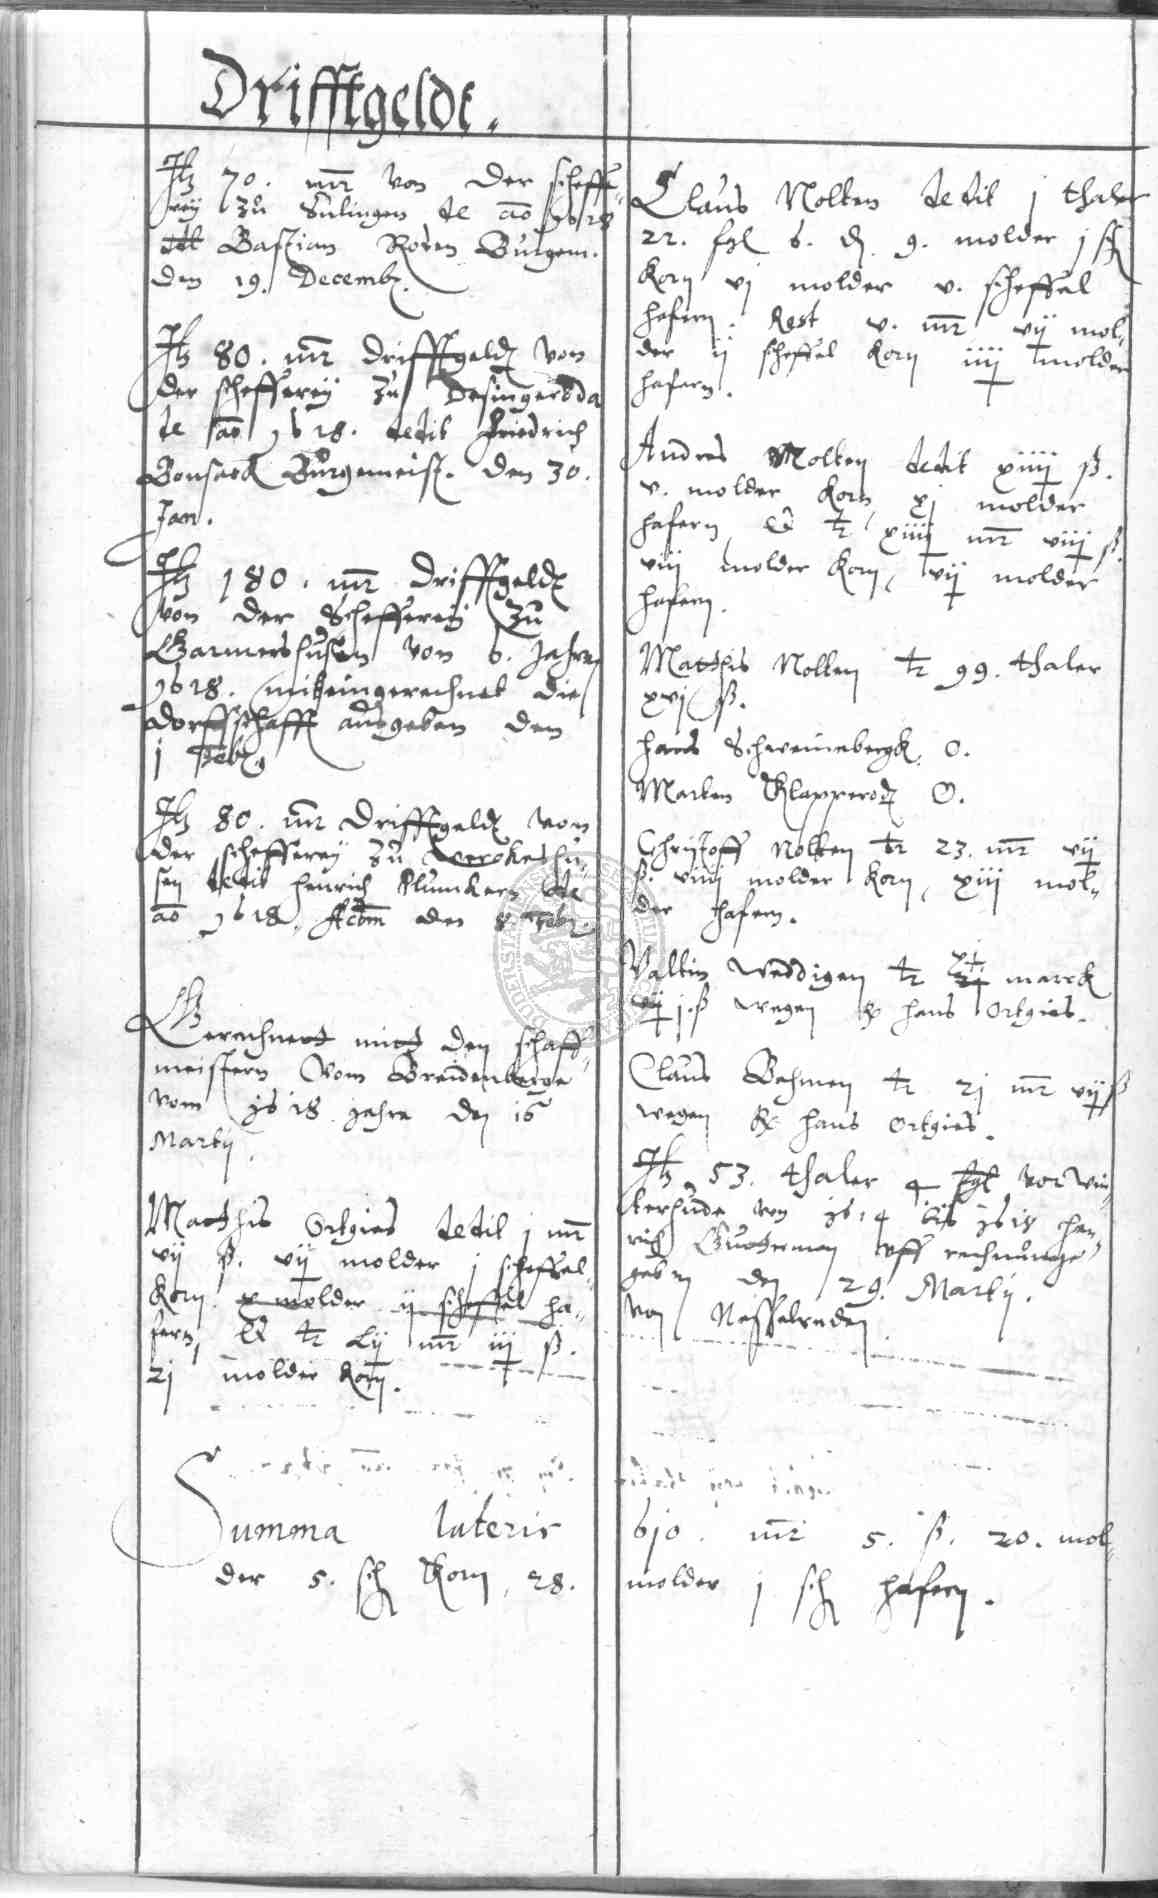 Drifftgeldt.
It 70. mr von der scheffe-
rey zu Sulingen de ao 1618
dt Bastian Roden Burgem.
den 19. Decemb.
It 80. mr Drifftgeldt von
der schefferey zu Desingeroda
de ao 1618. dedit Friedrich
Bonsack Burgemeist. den 30.
Jan.
It 180. mr Drifftgeldt
von der Schefferey zu
Garmershusen von 6. Jahre
1618. mit eingerechnet die
Dorffschafft ausgeben den
j Feb.
It 80. mr Drifftgeldt von
der schefferey zu Werckeshu-
sen dedit Henrich Klunckern de
ao 1618. den 8 Feb.
Gerechnet mitt den schaff-
meistern vom Breidenberge
vom 1618 jahre den 16
Martij.
Matthis Ortgies dedit j mr
vij ß. vij molder j scheffel
Korn x molder ij scheffel ha-
fern, & tr Lij mr iij ß.
molder Korn.
Claus Nolten dedit j thaler
22. 6. 9. molder j sch
Korn vj molder v. scheffel
hafern. Rest v. mr vij mol-
der ij scheffel Korn iiij molder
hafern.
Andres Nolten dedit xiiij ß.
v. molder Korn, xj molder
hafern & tr xiiij mr viij ß.
viij molder Korn, vij molder
hafern.
Matthis Nolten tr 99. thaler
xvj ß.
Hans Schweinebergk. 0.
Marten Klapperodt 0.
Christoff Nolten tr 23. mr vij
ß. viiij molder Korn, xiij mol-
der hafern.
Valtin Weddigen tr marck
j ß wegen Hans Ortgies.
Claus Behmen tr mr vij ß
wegen Hans Ortgies.
It 53. thaler 4 vor Win-
terhude von 1614 bis 1618 Hen-
rich uff rechnunge
geben den 29. Martij.
von Nesselreden.
Summa lateris 610. mr 5. ß. 20. mol-
der 5. sch Korn, 28. molder j sch hafern.